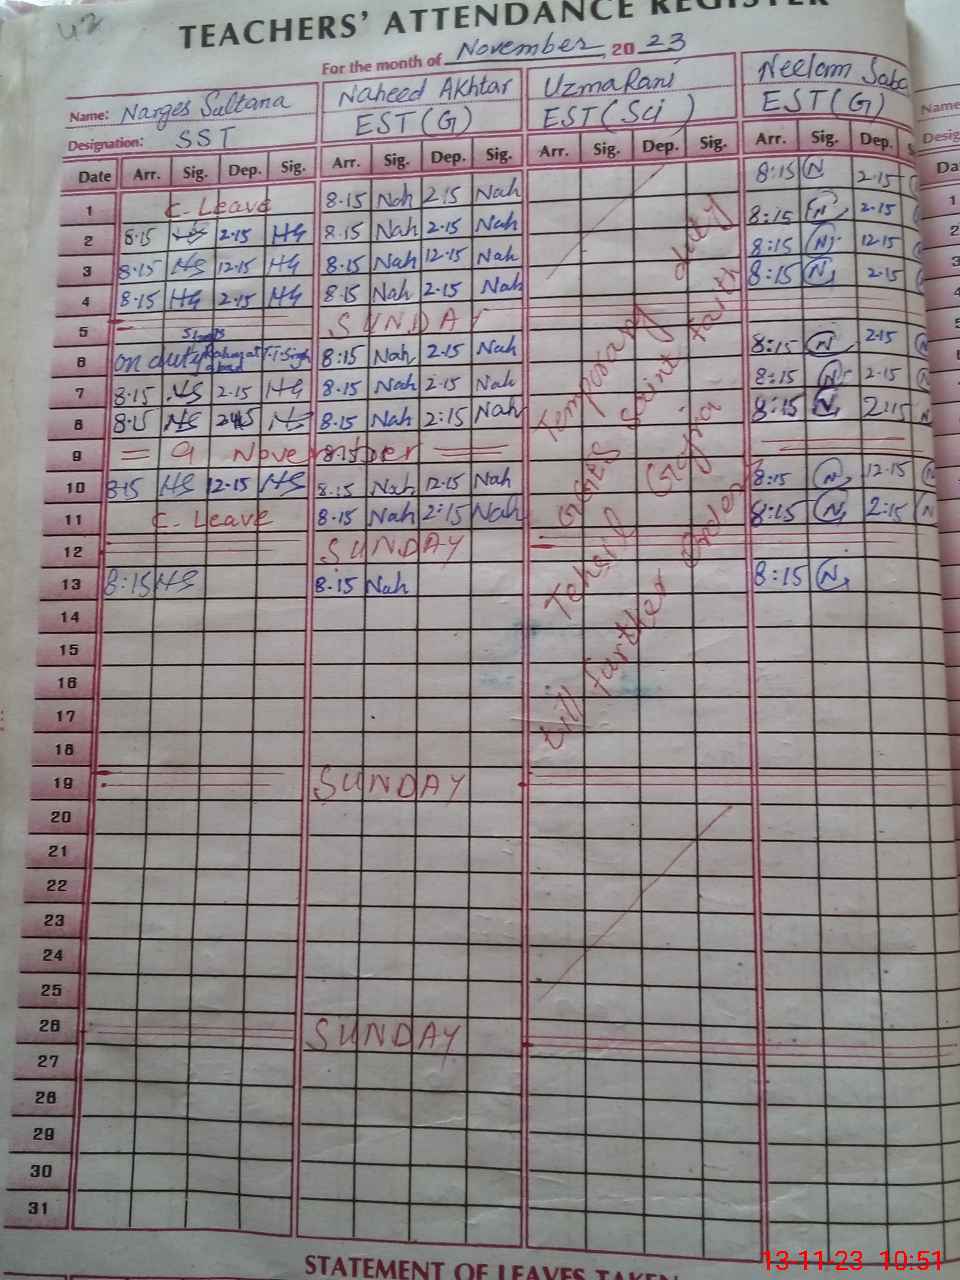 42
TEACHERS' ATTENDANCE REGISTER
For the month of November 2023
Name: Narges Sultana Naheed Akhtar Uzma Rani Neelam Saba
Designation: SST EST(G) EST(Sci) EST(G)
Date Arr. Sig. Dep. Sig. Arr. Sig. Dep. Sig. Arr. Sig. Dep. Sig. Arr. Sig. Dep. S
1 C. Leave 8.15 Nah 2.15 Nah 8:15 N 2.15
2 8.15 HS 2.15 HS 8.15 Nah 2.15 Nah 8:15 N 2.15
3 8.15 HS 12.15 HS 8.15 Nah 12.15 Nah 8:15 N 12.15
4 8.15 HS 2.15 HS 8.15 Nah 2.15 Nah 8:15 N 2.15
5 SUNDAY
6 on duty 8:15 Nah 2.15 Nah 8:15 N 2.15 N
7 8.15 HS 2.15 HS 8.15 Nah 2.15 Nah 8:15 N 2.15 N
8 8.15 HS 2.15 HS 8.15 Nah 2:15 Nah 8:15 N 2:15 N
9 = 9 November =
10 8.15 HS 12.15 HS 8.15 Nah 12.15 Nah 8:15 N 12.15 N
11 C. Leave 8.15 Nah 2:15 Nah 8:15 N 2:15 N
12 SUNDAY
13 8:15 HS 8.15 Nah 8:15 N
14
15
16
17
18
19 SUNDAY
20
21
22
23
24
25
26 SUNDAY
27
28
29
30
31
Temporary duty
GGES Saint
Tehsil Gojra
till further order
STATEMENT OF LEAVES TAKEN
Name
Desig
Da
1
2
3
4
13-11-23 10:51